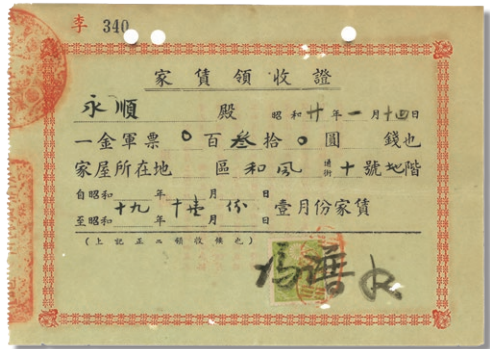 李 340
家賃領收證
永順 殿 昭和廿年一月十四日
一金軍票〇百叁拾〇圓 錢也
家屋所在地 區和風 道街 十號地階
自昭和 年 月 日
十九 十壹 份 壹月份家賃
至昭和 年 月 日
(上記正ニ領收候也)